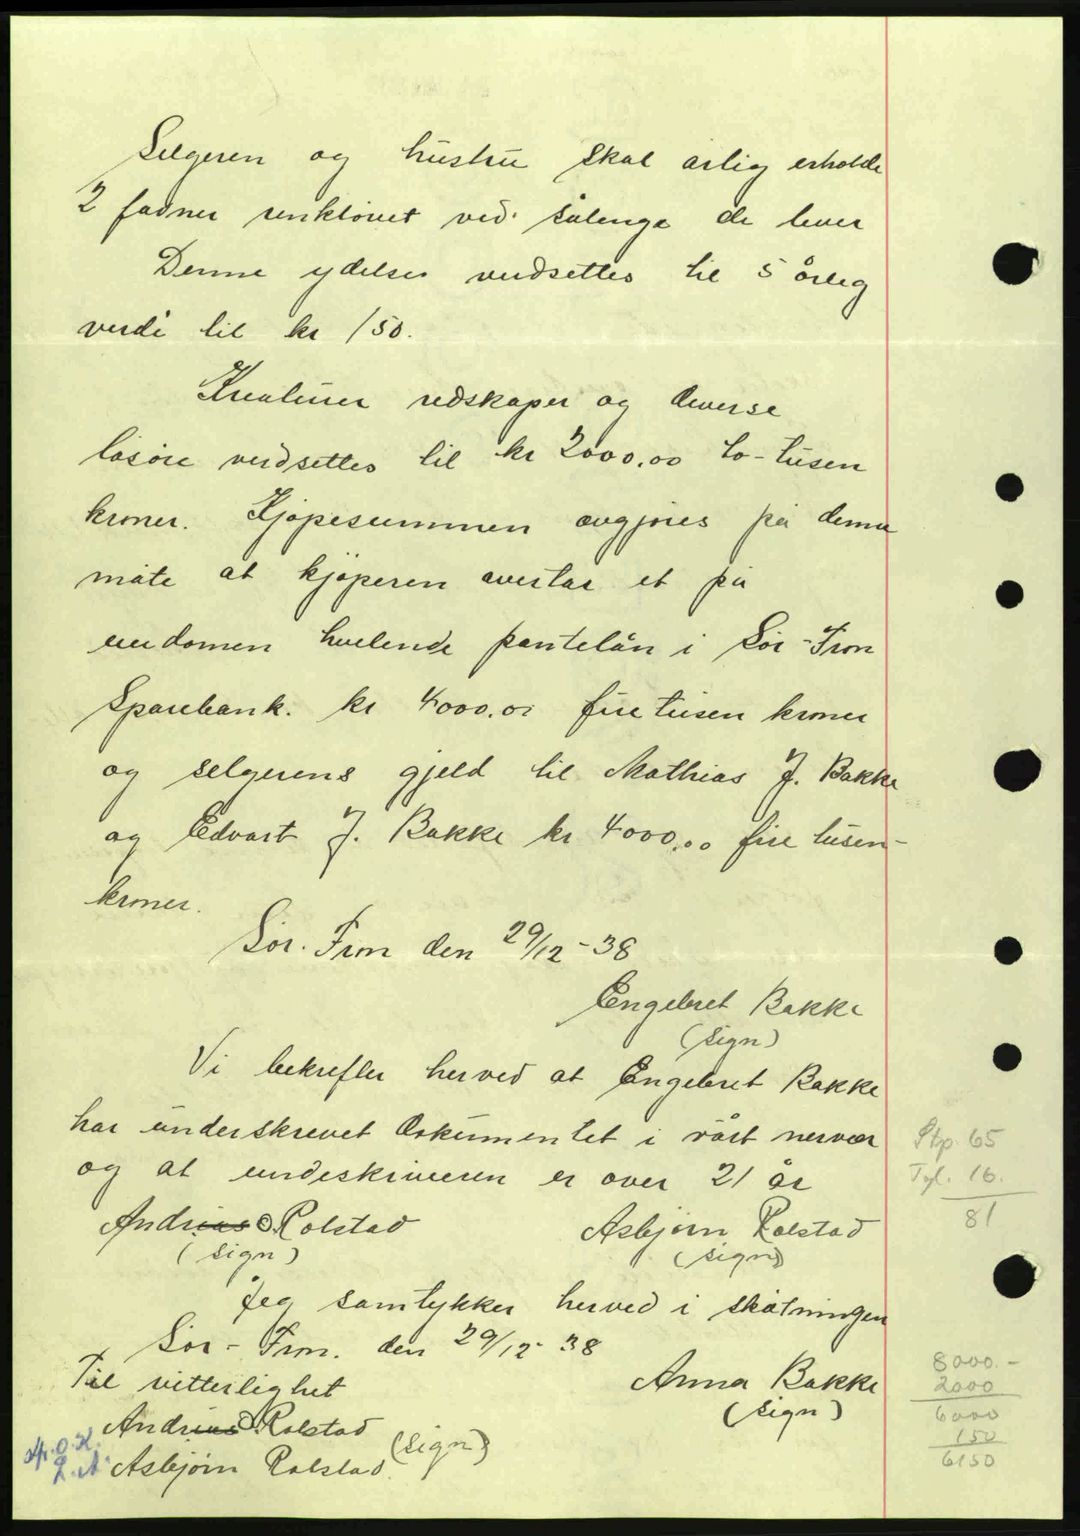 Selgeren og hustru skal årlig erholde
2 favner renkløvet ved sålenge de lever
Denne ydelse verdsettes til 5 årlig
verdi til kr 150.
Kreaturer redskaper og diverse
løsøre verdsettes til kr 2000,00 to-tusen
kroner. Kjøpesummen avgjøres på denne
måte at kjøperen overtar et på
eiendomen hvilende pantelån i Sør-Fron
Sparebank. kr 4000.00 fire tusen kroner
og selgerens gjeld til Mathias J. Bakke
og Edvart J. Bakke kr 4000,00 fire tusen-
kroner.
Sør-Fron den 29/12-38
Engebret Bakke
(sign)
Vi bekrefter herved at Engebret Bakke
har underskrevet dokumentet i vårt nærvær
og at underskriveren er over 21 år
Andrias O. Rolstad Asbjørn Rolstad
(sign) (sign)
Jeg samtykker herved i skøtningen
Sør-Fron. den 29/12-38
Til vitterlighet Anna Bakke
(sign)
Andrias O. Rolstad
Asbjørn Rolstad (sign)
Stp. 65
Tgl. 16.
81
8000.-
2000
6000
150
6150